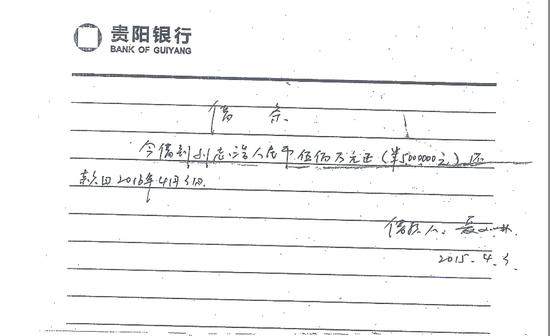 贵阳银行
BANK OF GUIYANG
借 条
今借到刘志浩人民币伍佰万元正(¥5000000元)还
款日2016年4月3日.
借款人:
2015.4.3